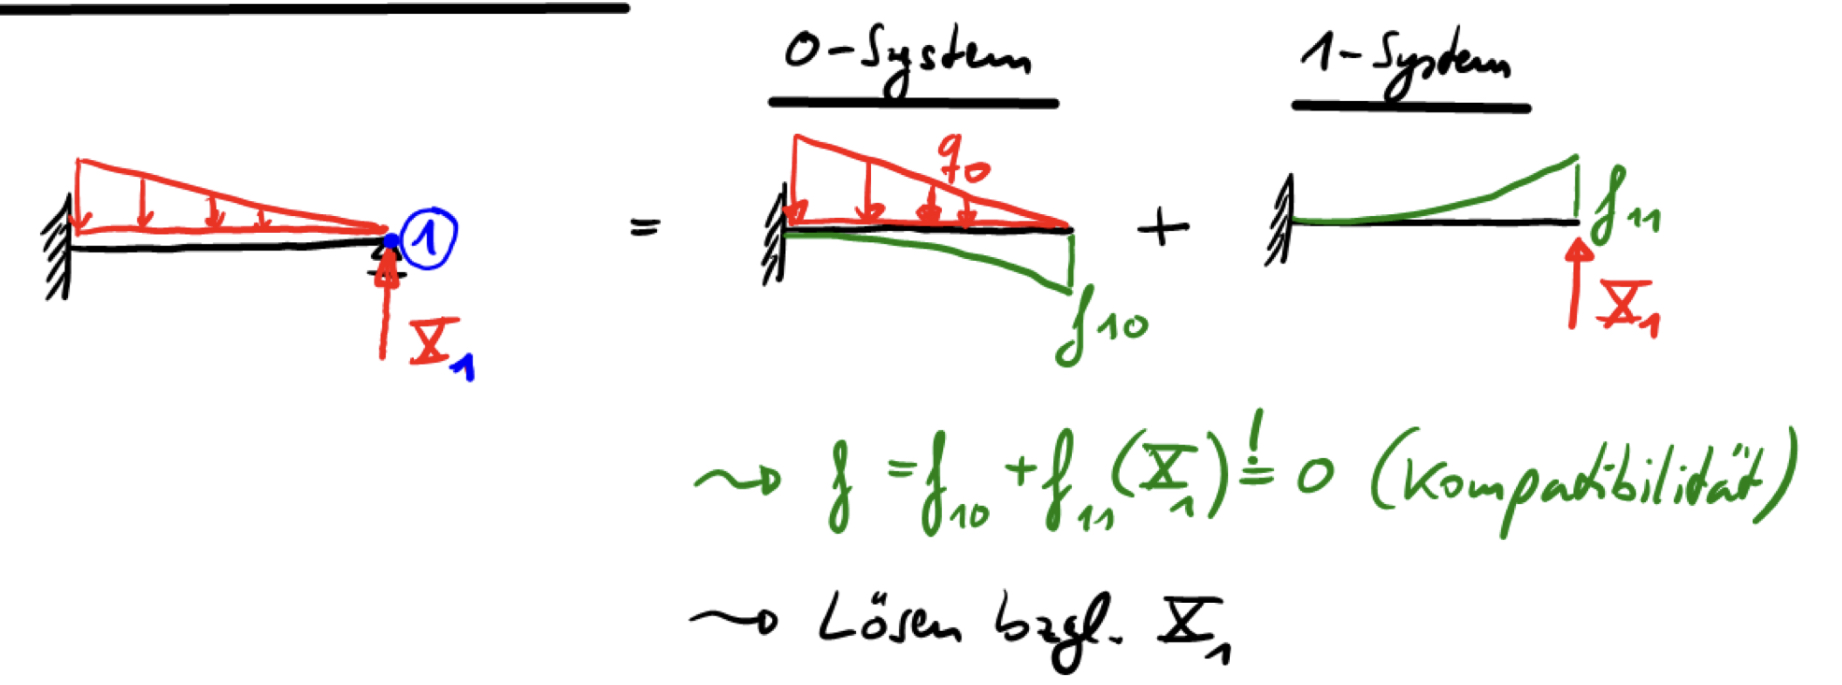 0-System
1-System
q₀
1
=
+
f₁₁
X₁
X₁
f₁₀
⇝ f = f₁₀ + f₁₁ (X₁) =! 0 (Kompatibilität)
⇝ Lösen bzgl. X₁